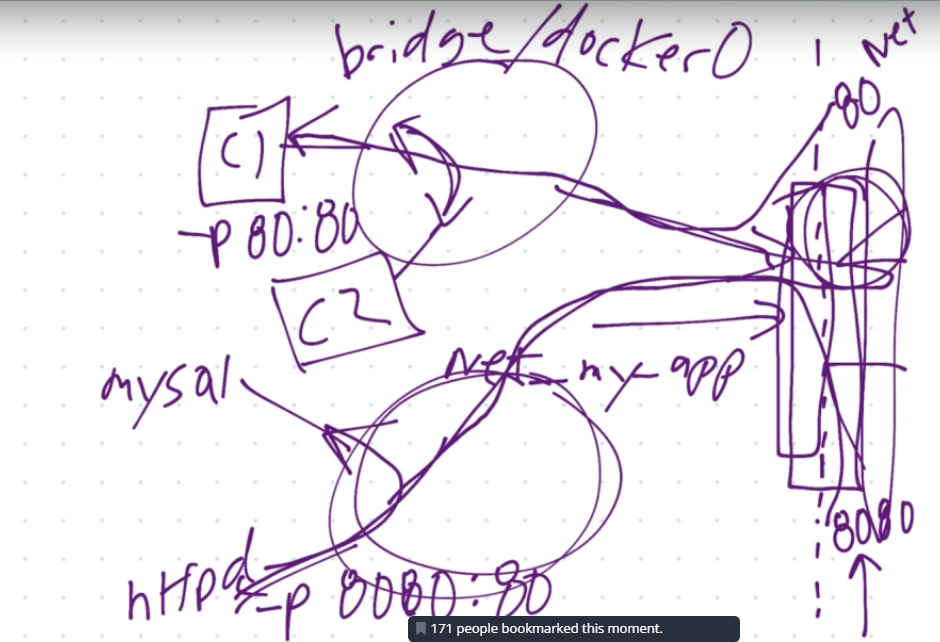 bridge/docker0
Net
80
C1
-p 80:80
C2
mysql
Net my-app
8080
httpd
-p 8080:80
171 people bookmarked this moment.